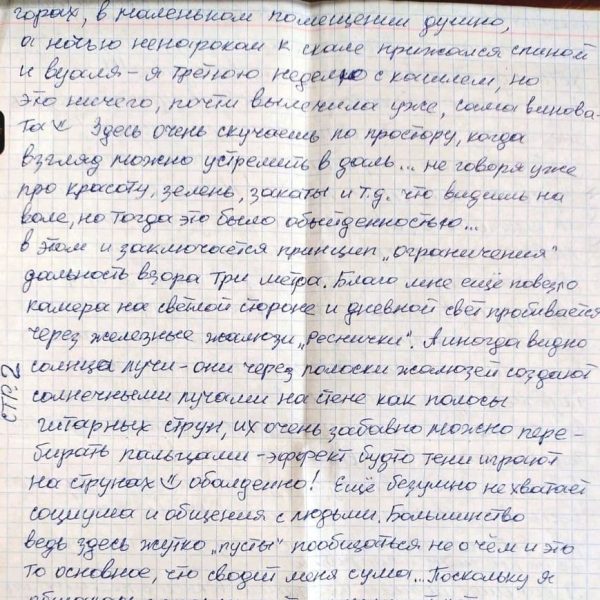 горах, в маленьком помещении душно,
а ночью ненароком к скале прижался спиной
и вуаля - я третью неделю с кашлем, но
это ничего, почти вылечила уже, сама винова-
та Здесь очень скучаешь по простору, когда
взгляд можно устремить в даль... не говоря уже
про красоту, зелень, закаты и т.д. что видишь на
воле, но тогда это было обыйденностью...
в этом и заключается принцип „ограничения"
дальность взора три метра. Благо мне ещё повезло
камера на светлой стороне и дневной свет пробивается
через железные жалюзи „реснички". А иногда видно
солнца лучи - они через полоски жалюзей создают
солнечными лучами на стене как полосы
гитарных струн, их очень забавно можно пере-
бирать пальцами - эффект будто тени играют
на струнах обалденно! Ещё безумно не хватает
социума и общения с людьми. Большинство
ведь здесь жутко „пусты" пообщаться не о чём и это
то основное, что сводит меня с ума... Поскольку я
СТР. 2